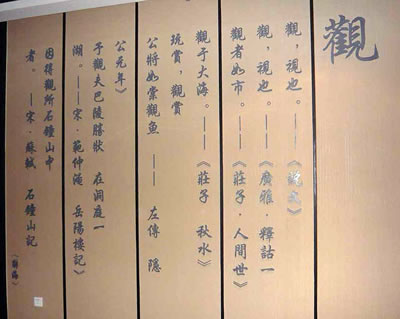 觀
觀，視也。——《說文》
觀，視也。——《廣雅·釋詁一
觀者如市。——《莊子·人間世》
觀于大海。——《莊子 秋水》
玩賞，觀賞
公將如棠觀魚 —— 左傳 隱
公元年）
予觀夫巴陵勝狀 在洞庭一
湖。——宋·範仲淹 岳陽樓記》
因得觀所石鐘山中
者。——宋·蘇軾 石鐘山記
《辭海》